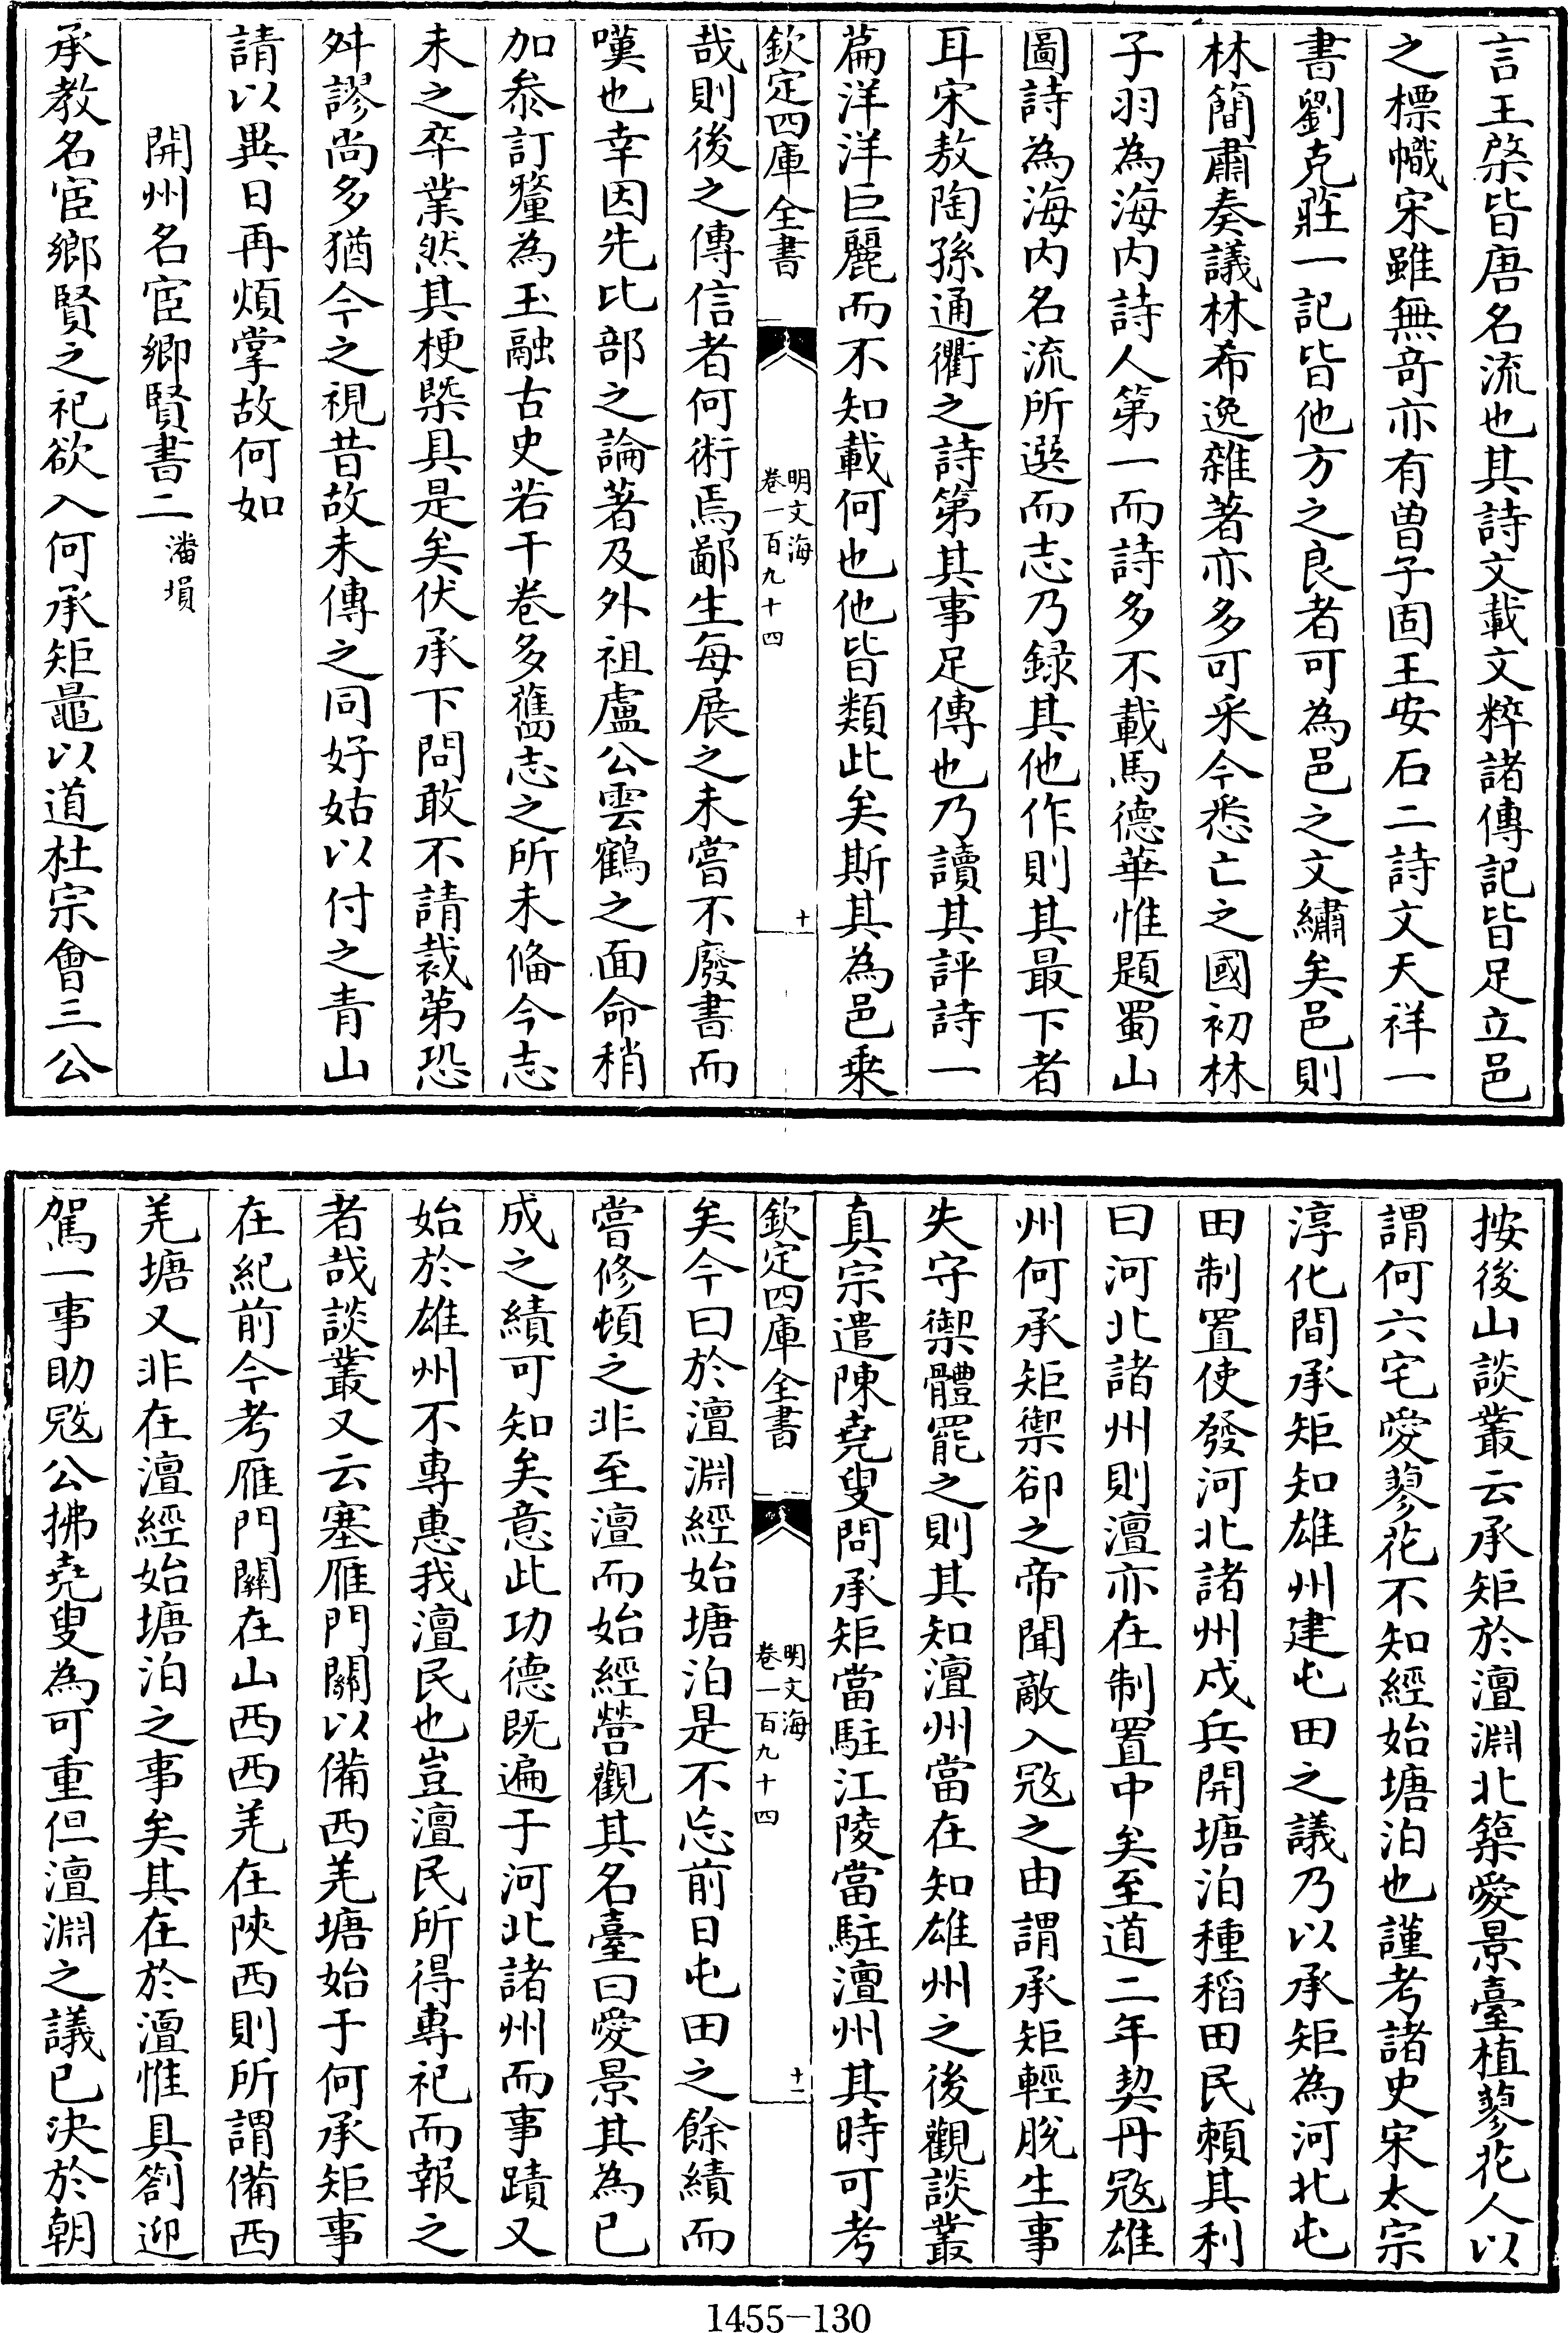 言王棨皆唐名流也其詩文載文粹諸傳記皆足立邑
之標幟宋雖無竒亦有曾子固王安石二詩文天祥一
書劉克莊一記皆他方之良者可為邑之文繡矣邑則
林簡肅奏議林希逸雜著亦多可采今悉亡之國初林
子羽為海内詩人第一而詩多不載馬德華惟題蜀山
圖詩為海内名流所選而志乃録其他作則其最下者
耳宋敖陶孫通衢之詩第其事足傳也乃讀其評詩一
篇洋洋巨麗而不知載何也他皆類此矣斯其為邑乗
欽定四庫全書
明文海
卷一百九十四
十
哉則後之傳信者何術焉鄙生每展之未嘗不廢書而
嘆也幸因先比部之論著及外祖盧公雲鶴之面命稍
加叅訂釐為玉融古史若干卷多舊志之所未備今志
未之卒業然其梗槩具是矣伏承下問敢不請裁第恐
舛謬尚多猶今之視昔故未傳之同好姑以付之青山
請以異日再煩掌故何如
開州名宦鄉賢書二
潘塤
承教名宦鄉賢之祀欲入何承矩鼂以道杜宗會三公
按後山談叢云承矩於澶淵北築愛景臺植蓼花人以
謂何六宅愛蓼花不知經始塘泊也謹考諸史宋太宗
淳化間承矩知雄州建屯田之議乃以承矩為河北屯
田制置使發河北諸州戍兵開塘泊種稻田民頼其利
曰河北諸州則澶亦在制置中矣至道二年契丹冦雄
州何承矩禦卻之帝聞敵入冦之由謂承矩輕脫生事
失守禦體罷之則其知澶州當在知雄州之後觀談叢
真宗遣陳堯叟問承矩當駐江陵當駐澶州其時可考
欽定四庫全書
明文海
卷一百九十四
十一
矣今曰於澶淵經始塘泊是不忘前日屯田之餘績而
嘗修頓之非至澶而始經營觀其名臺曰愛景其為已
成之績可知矣意此功德既遍于河北諸州而事蹟又
始於雄州不專惠我澶民也豈澶民所得專祀而報之
者哉談叢又云塞雁門關以備西羌塘始于何承矩事
在紀前今考雁門關在山西西羌在陜西則所謂備西
羌塘又非在澶經始塘泊之事矣其在於澶惟具劄迎
駕一事助冦公拂堯叟為可重但澶淵之議已決於朝
1455-130